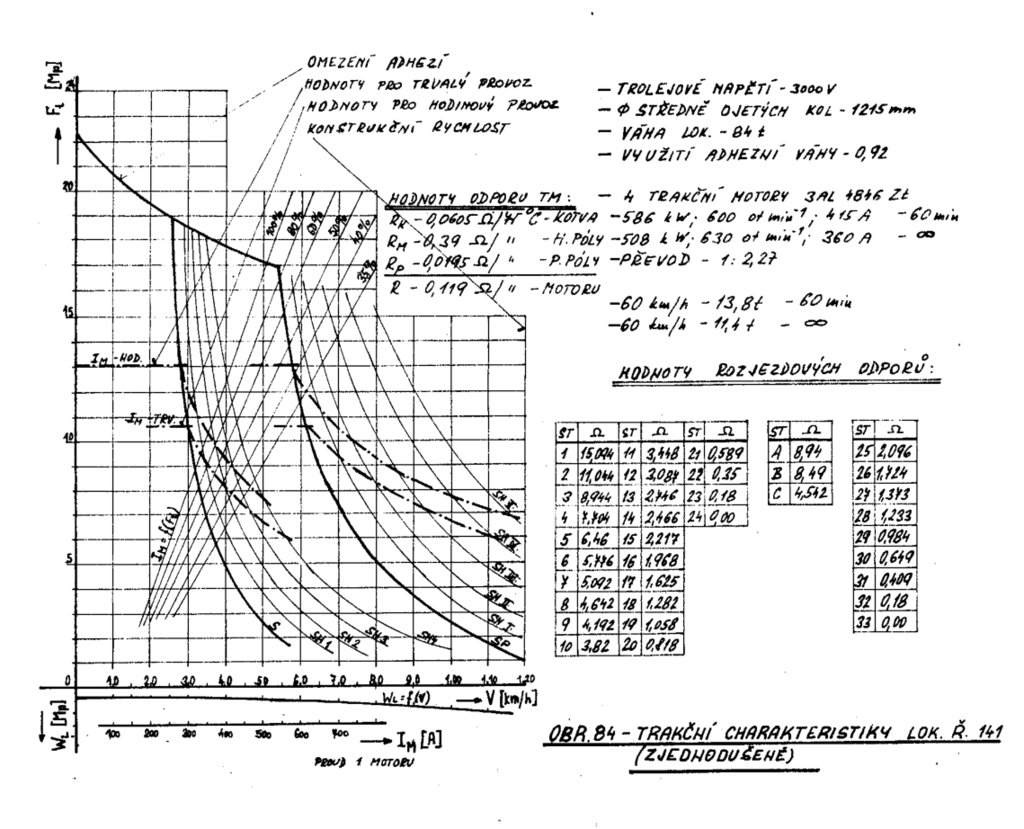 OMEZENÍ ADHEZÍ
HODNOTY PRO TRVALÝ PROVOZ
HODNOTY PRO HODINOVÝ PROVOZ
KONSTRUKČNÍ RYCHLOST
F_L [Mp]
24
20
15
10
5
0
I_M - HOD.
I_M - TRV.
I_M = f(F_t)
100%
80%
60%
50%
40%
35%
S
SH 1
SH 2
SH 3
SH 4
SP
SH I.
SH II
SH III
SH IV.
SH V.
1.0 2.0 3.0 4.0 5.0 6.0 7.0 8.0 9.0 1.00 1.10 1.20
W_L = f(V)
V [km/h]
W_L [Mp]
100 200 300 400 500 600 700
I_M [A]
PROUD 1 MOTORU
- TROLEJOVÉ NAPĚTÍ - 3000 V
- Φ STŘEDNĚ OJETÝCH KOL - 1215 mm
- VÁHA LOK. - 84 t
- VYUŽITÍ ADHEZNÍ VÁHY - 0,92
HODNOTY ODPORU TM:
R_K - 0,0605 Ω/ °C - KOTVA
R_M - 0,39 Ω/ " - H. PÓLY
R_P - 0,0195 Ω/ " - P. PÓLY
R - 0,119 Ω/ " - MOTORU
- 4 TRAKČNÍ MOTORY 3AL 4846 Zt
- 586 kW; 600 ot min⁻¹; 415 A - 60 min
- 508 kW; 630 ot min⁻¹; 360 A - ∞
- PŘEVOD - 1 : 2,27
- 60 km/h - 13,8 t - 60 min
- 60 km/h - 11,4 t - ∞
HODNOTY ROZJEZDOVÝCH ODPORŮ:
ST Ω ST Ω ST Ω
1 15,094 11 3,448 21 0,589
2 11,044 12 3,087 22 0,35
3 8,944 13 2,746 23 0,18
4 7,704 14 2,466 24 0,00
5 6,46 15 2,217
6 5,776 16 1,968
7 5,092 17 1,625
8 4,642 18 1,282
9 4,192 19 1,058
10 3,82 20 0,818
ST Ω
A 8,94
B 8,49
C 4,542
ST Ω
25 2,096
26 1,724
27 1,373
28 1,233
29 0,984
30 0,649
31 0,409
32 0,18
33 0,00
OBR. 84 - TRAKČNÍ CHARAKTERISTIKY LOK. Ř. 141
(ZJEDNODUŠENĚ)